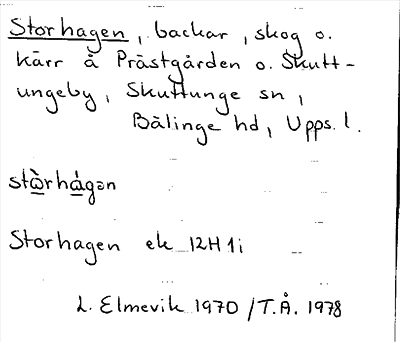 Storhagen, backar, skog o.
kärr å Prästgården o. Skutt-
ungeby, Skuttunge sn,
Bälinge hd, Upps. l.
stòrhágən
Storhagen ek 12H 1i
L. Elmevik 1970 / T.Å. 1978